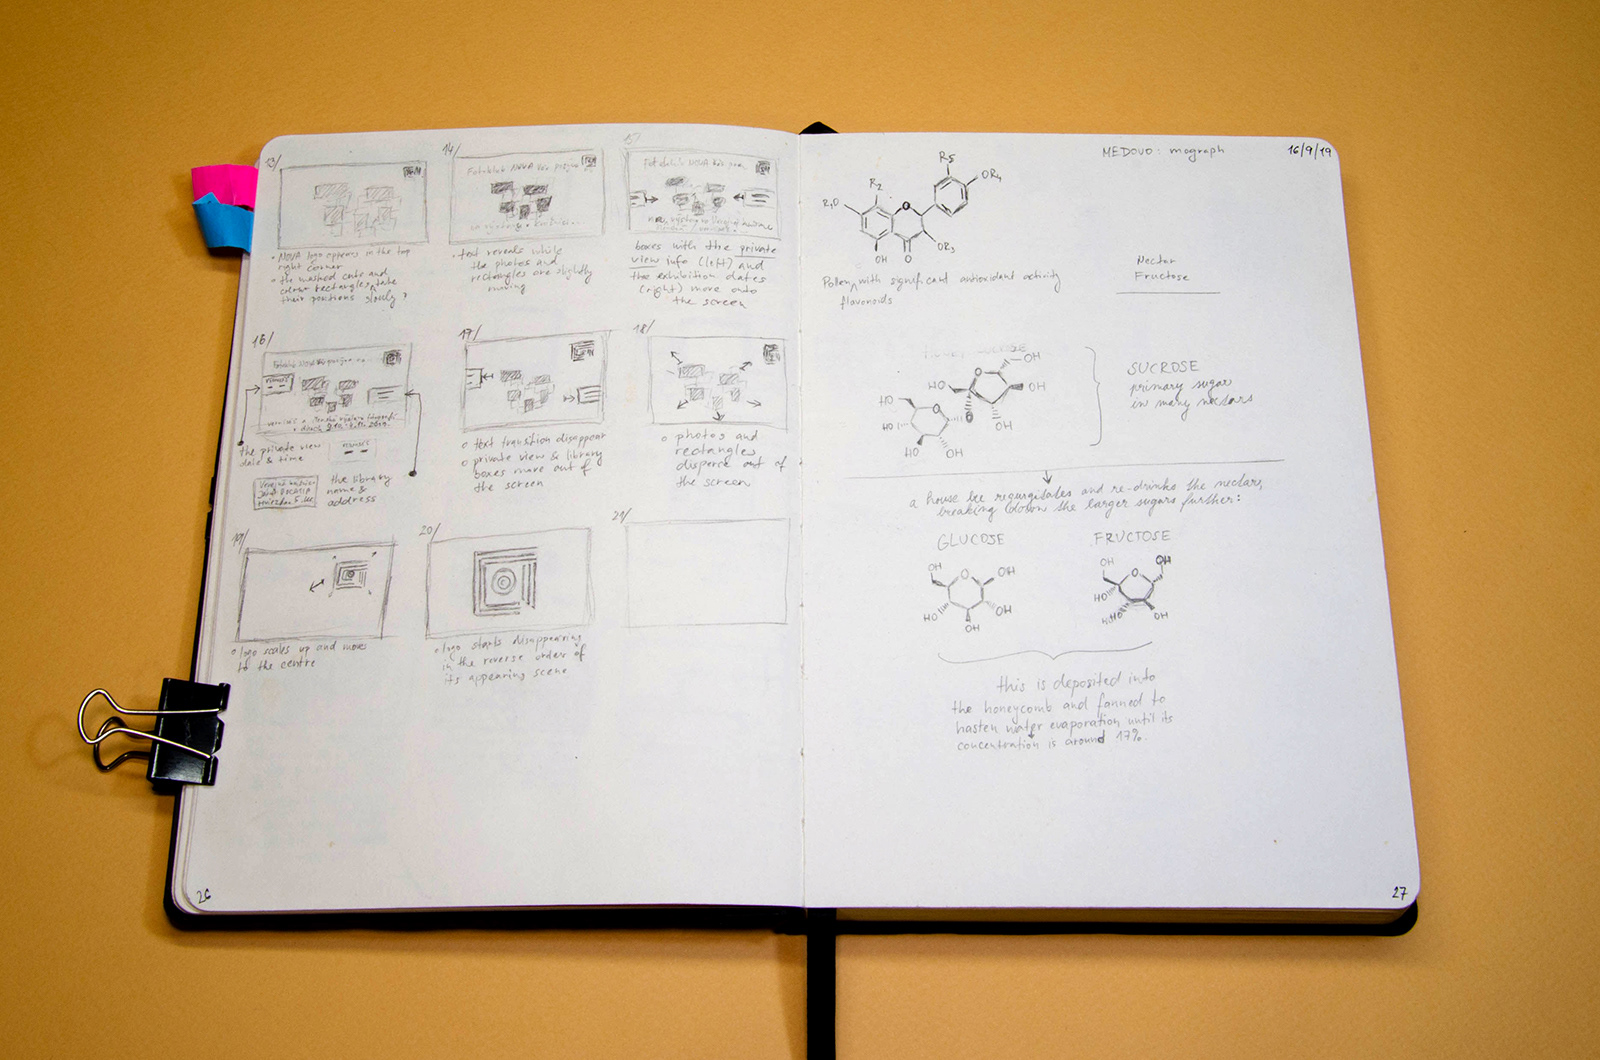 13/
• NOVA logo appears in the top
right corner
• the masked cuts and
colour rectangles take
their positions slowly
14/
Fotoklub NOVA
• text reveals while
the photos and
rectangles are slightly
moving
15/
Fotoklub NOVA
boxes with the private
view info (left) and
the exhibition dates
(right) move onto
the screen
16/
Fotoklub NOVA
the private view
date & time
the library
name &
address
17/
• text transition disappear
• private view & library
boxes move out of
the screen
18/
• photos and
rectangles
disperse out of
the screen
19/
• logo scales up and moves
to the centre
20/
• logo starts disappearing
in the reverse order of
its appearing scene
21/
26
MEDOVO: mograph
16/9/19
R5
OR4
R2
R1O
O
OR3
OH
O
Pollen with significant antioxidant activity
flavonoids
Nectar
Fructose
OH
O
HO
OH
HO
O
O
HO
OH
HO
OH
SUCROSE
primary sugar
in many nectars
a house bee regurgitates and re-drinks the nectar,
breaking down the larger sugars further:
GLUCOSE
FRUCTOSE
OH
O
OH
HO
OH
OH
OH
OH
O
HO
HO
OH
OH
this is deposited into
the honeycomb and fanned to
hasten water evaporation until its
concentration is around 17%.
27